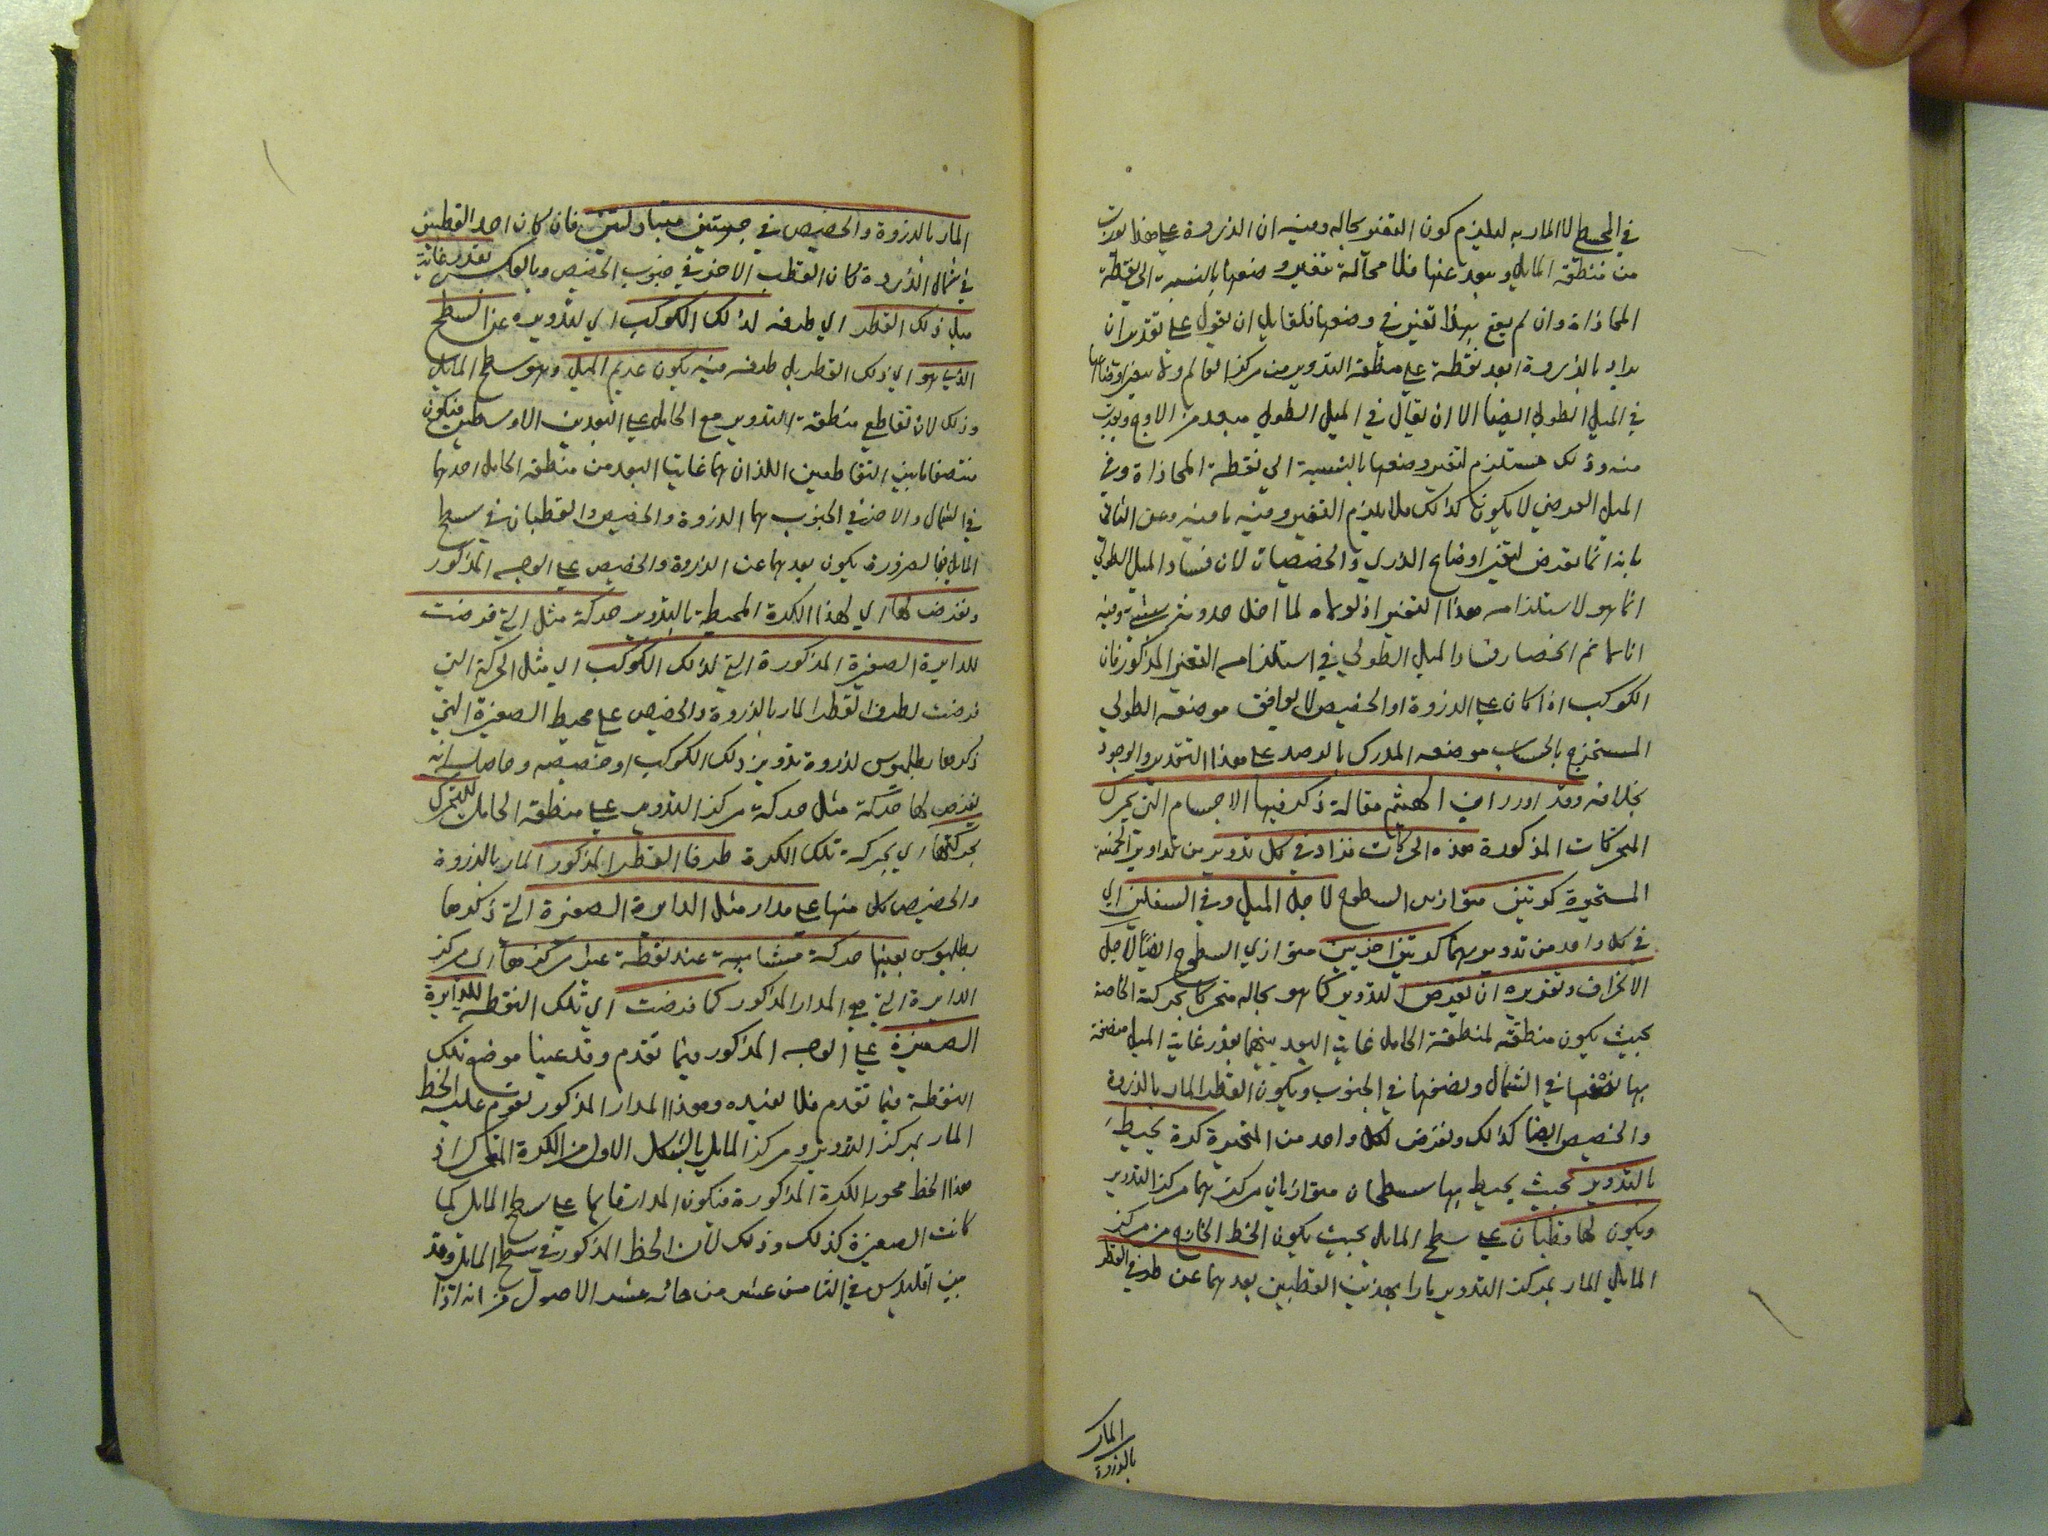 في المحيط لا المار به ليلزم كون التغير بحاله وفيه ان الذروة على هذا تقرب
من منطقة المايل وبعد عنها فلا محالة تتغير وضعها بالنسبة الى نقطة
المحاذاة وان لم يقع بهذا تغير في وضعها فلقايل ان يقول على تقدير ان
يراد بالذروة ابعد نقطة على منطقة التدوير من مركز العالم
في الميل الطولي ايضا الا ان يقال في الميل الطولي يبعد من الاوج ويقرب
منه وذلك مستلزم لتغير وضعها بالنسبة الى نقطة المحاذاة وفي
الميل العرضي لا يكون كذلك فلا يلزم التغير وفيه ما فيه وعن الثاني
بانه انما تعرض لتغير اوضاع الذرى والحضيضات لان فساد الميل الطولي
انما هو لاستلزامه هذا التغير اذ لولاه لما اختل وفيه
انا لا نم انحصار فساد الميل الطولي في استلزامه التغير المذكور فان
الكوكب اذا كان على الذروة او الحضيض لا يوافق موضعه الطولي
المستخرج بالحساب موضعه المدرك بالرصد على هذا التقدير والوجود
بخلافه وقد اورد ابن الهيثم مقالة ذكر فيها الاجسام التي تحرك
المحركات المذكورة هذه الحركات فزاد في كل تدوير من تداوير الخمسة
المتحيرة كرتين متوازيي السطوح لاجل الميل وفي السفليين اي
في كل واحد من تدويريهما كرتين اخريين متوازي السطوح ايضا لاجل
الانحراف وتقديره ان نفرض التدوير كما هو بحاله متحركا بحركته الخاصة
بحيث يكون منطقته لمنطقة الحامل غاية البعد بينهما بقدر غاية الميل
بها نصفها في الشمال ونصفها في الجنوب ويكون القطر المار بالذروة
والحضيض ايضا كذلك ونفرض لكل واحد من المتحيرة كرة يحيط
بالتدوير بحيث يحيط بها سطحان متوازيان مركزهما مركز التدوير
ويكون لها قطبان على سطح المايل بحيث يكون الخط الخارج من مركز
المايل المار بمركز التدوير مارا بهذين القطبين بعدهما عن طرفي القطر
المار
بالذروة
المار بالذروة والحضيض في جهتين متبادلتين فان كان احد القطبين
في شمال الذروة كان القطب الاخر في جنوب الحضيض وبالعكس بقدر غاية
ميل ذلك القطر اي طرفه لذلك الكوكب اي لتدويره عن السطح
الذي هو اي ذلك القطر بل طرفه فيه يكون عديم الميل وهو سطح المايل
وذلك لان تقاطع منطقة التدوير مع الحامل على البعدين الاوسطين فيكون
منتصفا ما بين التقاطعين اللذان هما غايتا البعد من منطقة الحامل احدهما
في الشمال والاخر في الجنوب هما الذروة والحضيض والقطبان في سطح
المايل فبالضرورة يكون بعدهما عن الذروة والحضيض على الوجه المذكور
ونفرض لها اي لهذا الكرة المحيطة بالتدوير حركة مثل التي فرضت
للدايرة الصغيرة المذكورة التي لذلك الكوكب اي مثل الحركة التي
فرضت لطرف القطر المار بالذروة والحضيض على محيط الصغيرة التي
ذكرها بطلميوس لذروة تدوير ذلك الكوكب او حضيضه وحاصله انه
يفرض لها حركة مثل حركة مركز التدوير على منطقة الحامل ليتحرك
بحركتها اي بحركة تلك الكرة طرفا القطر المذكور المار بالذروة
والحضيض كل منها على مدار مثل الدايرة الصغيرة التي ذكرها
بطلميوس بعينها حركة متشابهة عند نقطة غير مركزها اي مركز
الدايرة التي هي المدار المذكور كما فرضت اي تلك النقطة للدايرة
الصغيرة على الوجه المذكور فيما تقدم وقد عينا موضع تلك
النقطة فيما تقدم فلا نعيده وهذا المدار المذكور يقوم عليه الخط
المار بمركز التدوير ومركز المايل بالشكل الاول من الكرة المتحركة اذ
هذا الخط محور الكرة المذكورة فيكون المدار قايما على سطح المايل كما
كانت الصغيرة كذلك وذلك لان الخط المذكور في سطح المايل وقد
بين اقليدس في الثامن عشر من حادية عشر الاصول من انه اذا